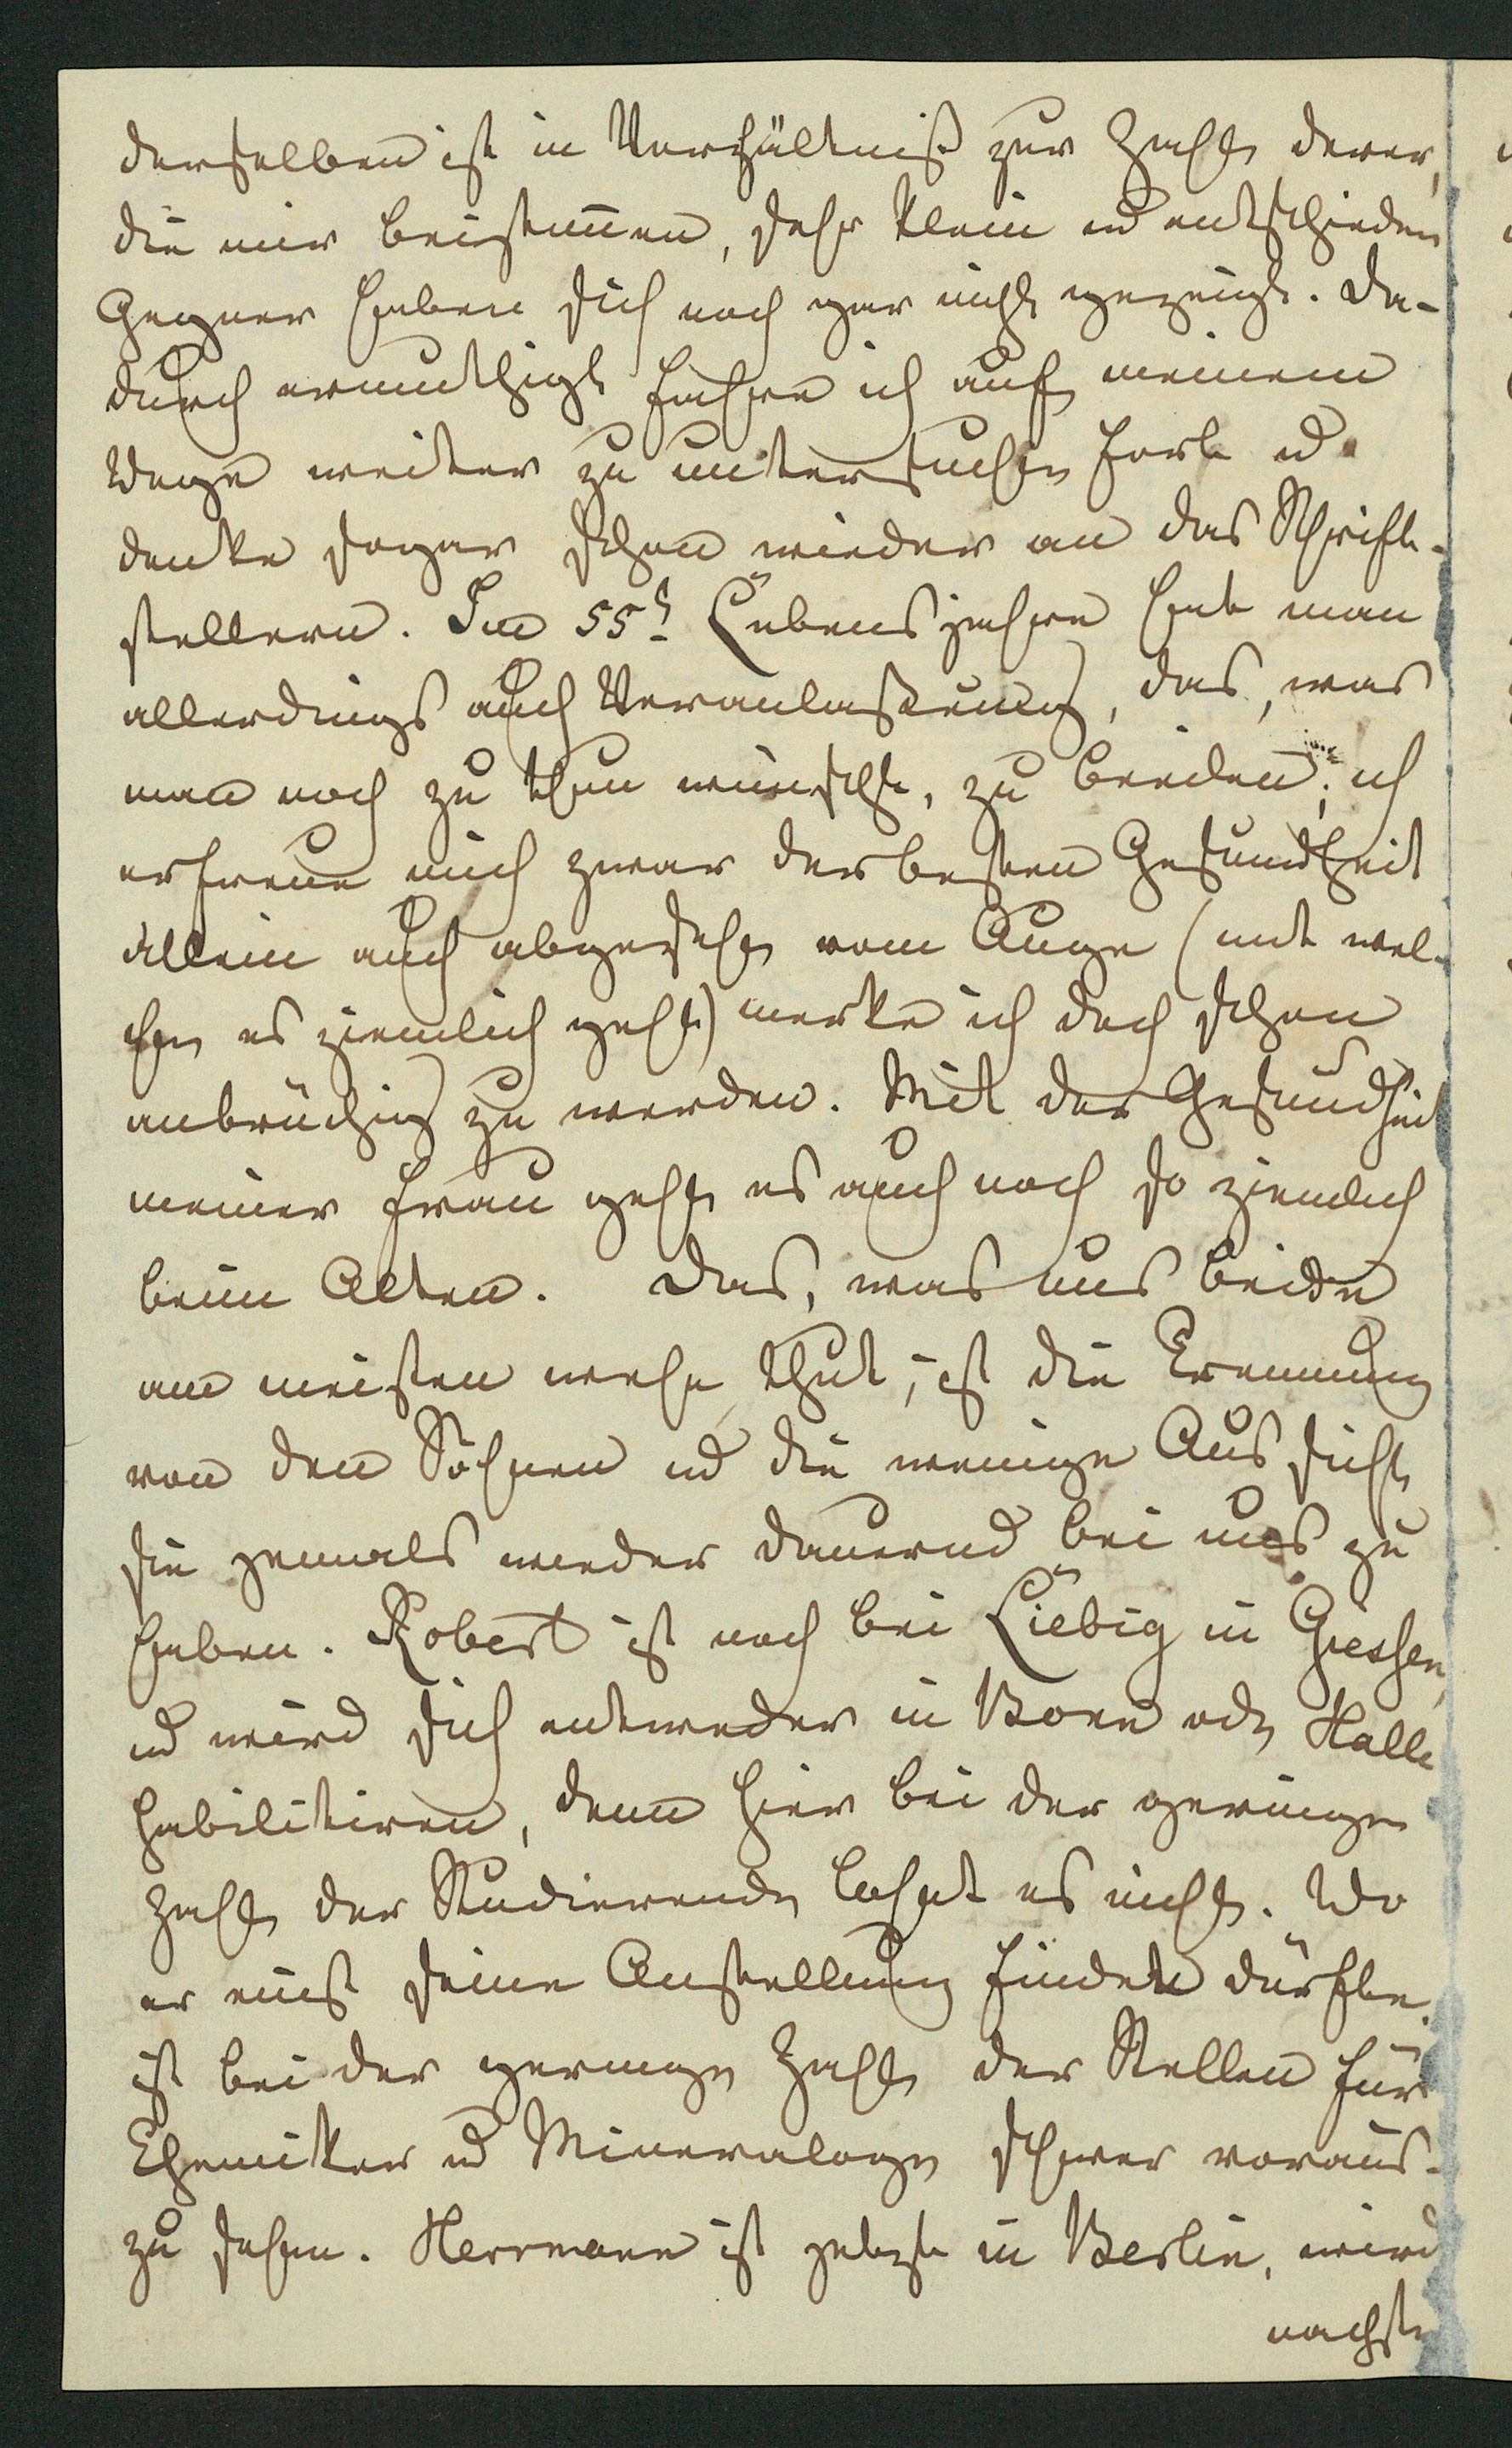 derselben ist in Verhältniß zur Zahl derer,
die mir beistim̅en, sehr klein ud entschieden
Gegner haben sich noch gar nicht gezeigt. Da-
durch ermuthigt fahre ich auf meinem
Wege weiter zu untersuchen fort ud
denke sogar schon wieder an das Schrift-
stellern. Im 55t Lebensjahre hat man
allerdings auch Veranlassung, das, was
man noch zu thun wünscht, zu beeilen; ich
erfreue mich zwar der besten Gesundheit
allein auch abgesehen vom Auge (mit wel-
chen es ziemlich geht) merke ich doch schon
anbrüchig zu werden. Mit der Gesundheit
meiner Frau geht es auch noch so ziemlich
beim Alten. Das, was uns beiden
am meisten wehe thut, ist die Trennung
von den Söhnen ud die wenige Aussicht
sie jemals wieder dauernd bei uns zu
haben. Robert ist noch bei Liebig in Giessen,
ud wird sich entweder in Bonn oder Halle
habilitiren, denn hier bei der geringen
Zahl der Studierenden lohnt es nicht. Wo
er einst seine Anstellung finden dürfte,
ist bei der geringen Zahl der Stellen für
Chemiker ud Mineralogen schwer voraus-
zu sehen. Herrmann ist jetzt in Berlin, wird
nächste